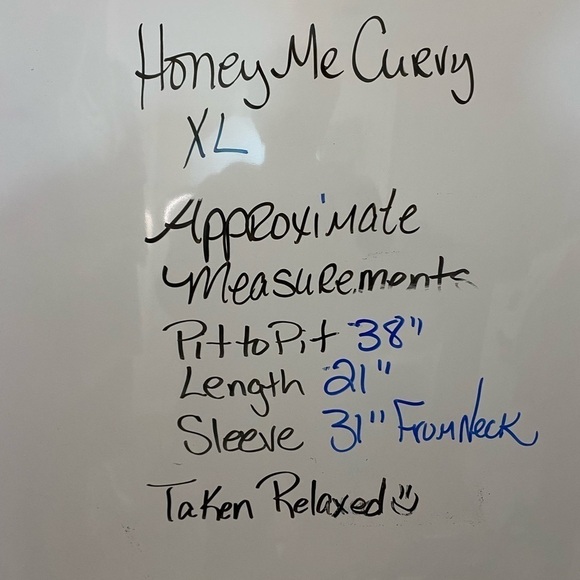 Honey Me Curvy
XL
Approximate
Measurements
Pit to Pit 38"
Length 21"
Sleeve 31" From Neck
Taken Relaxed